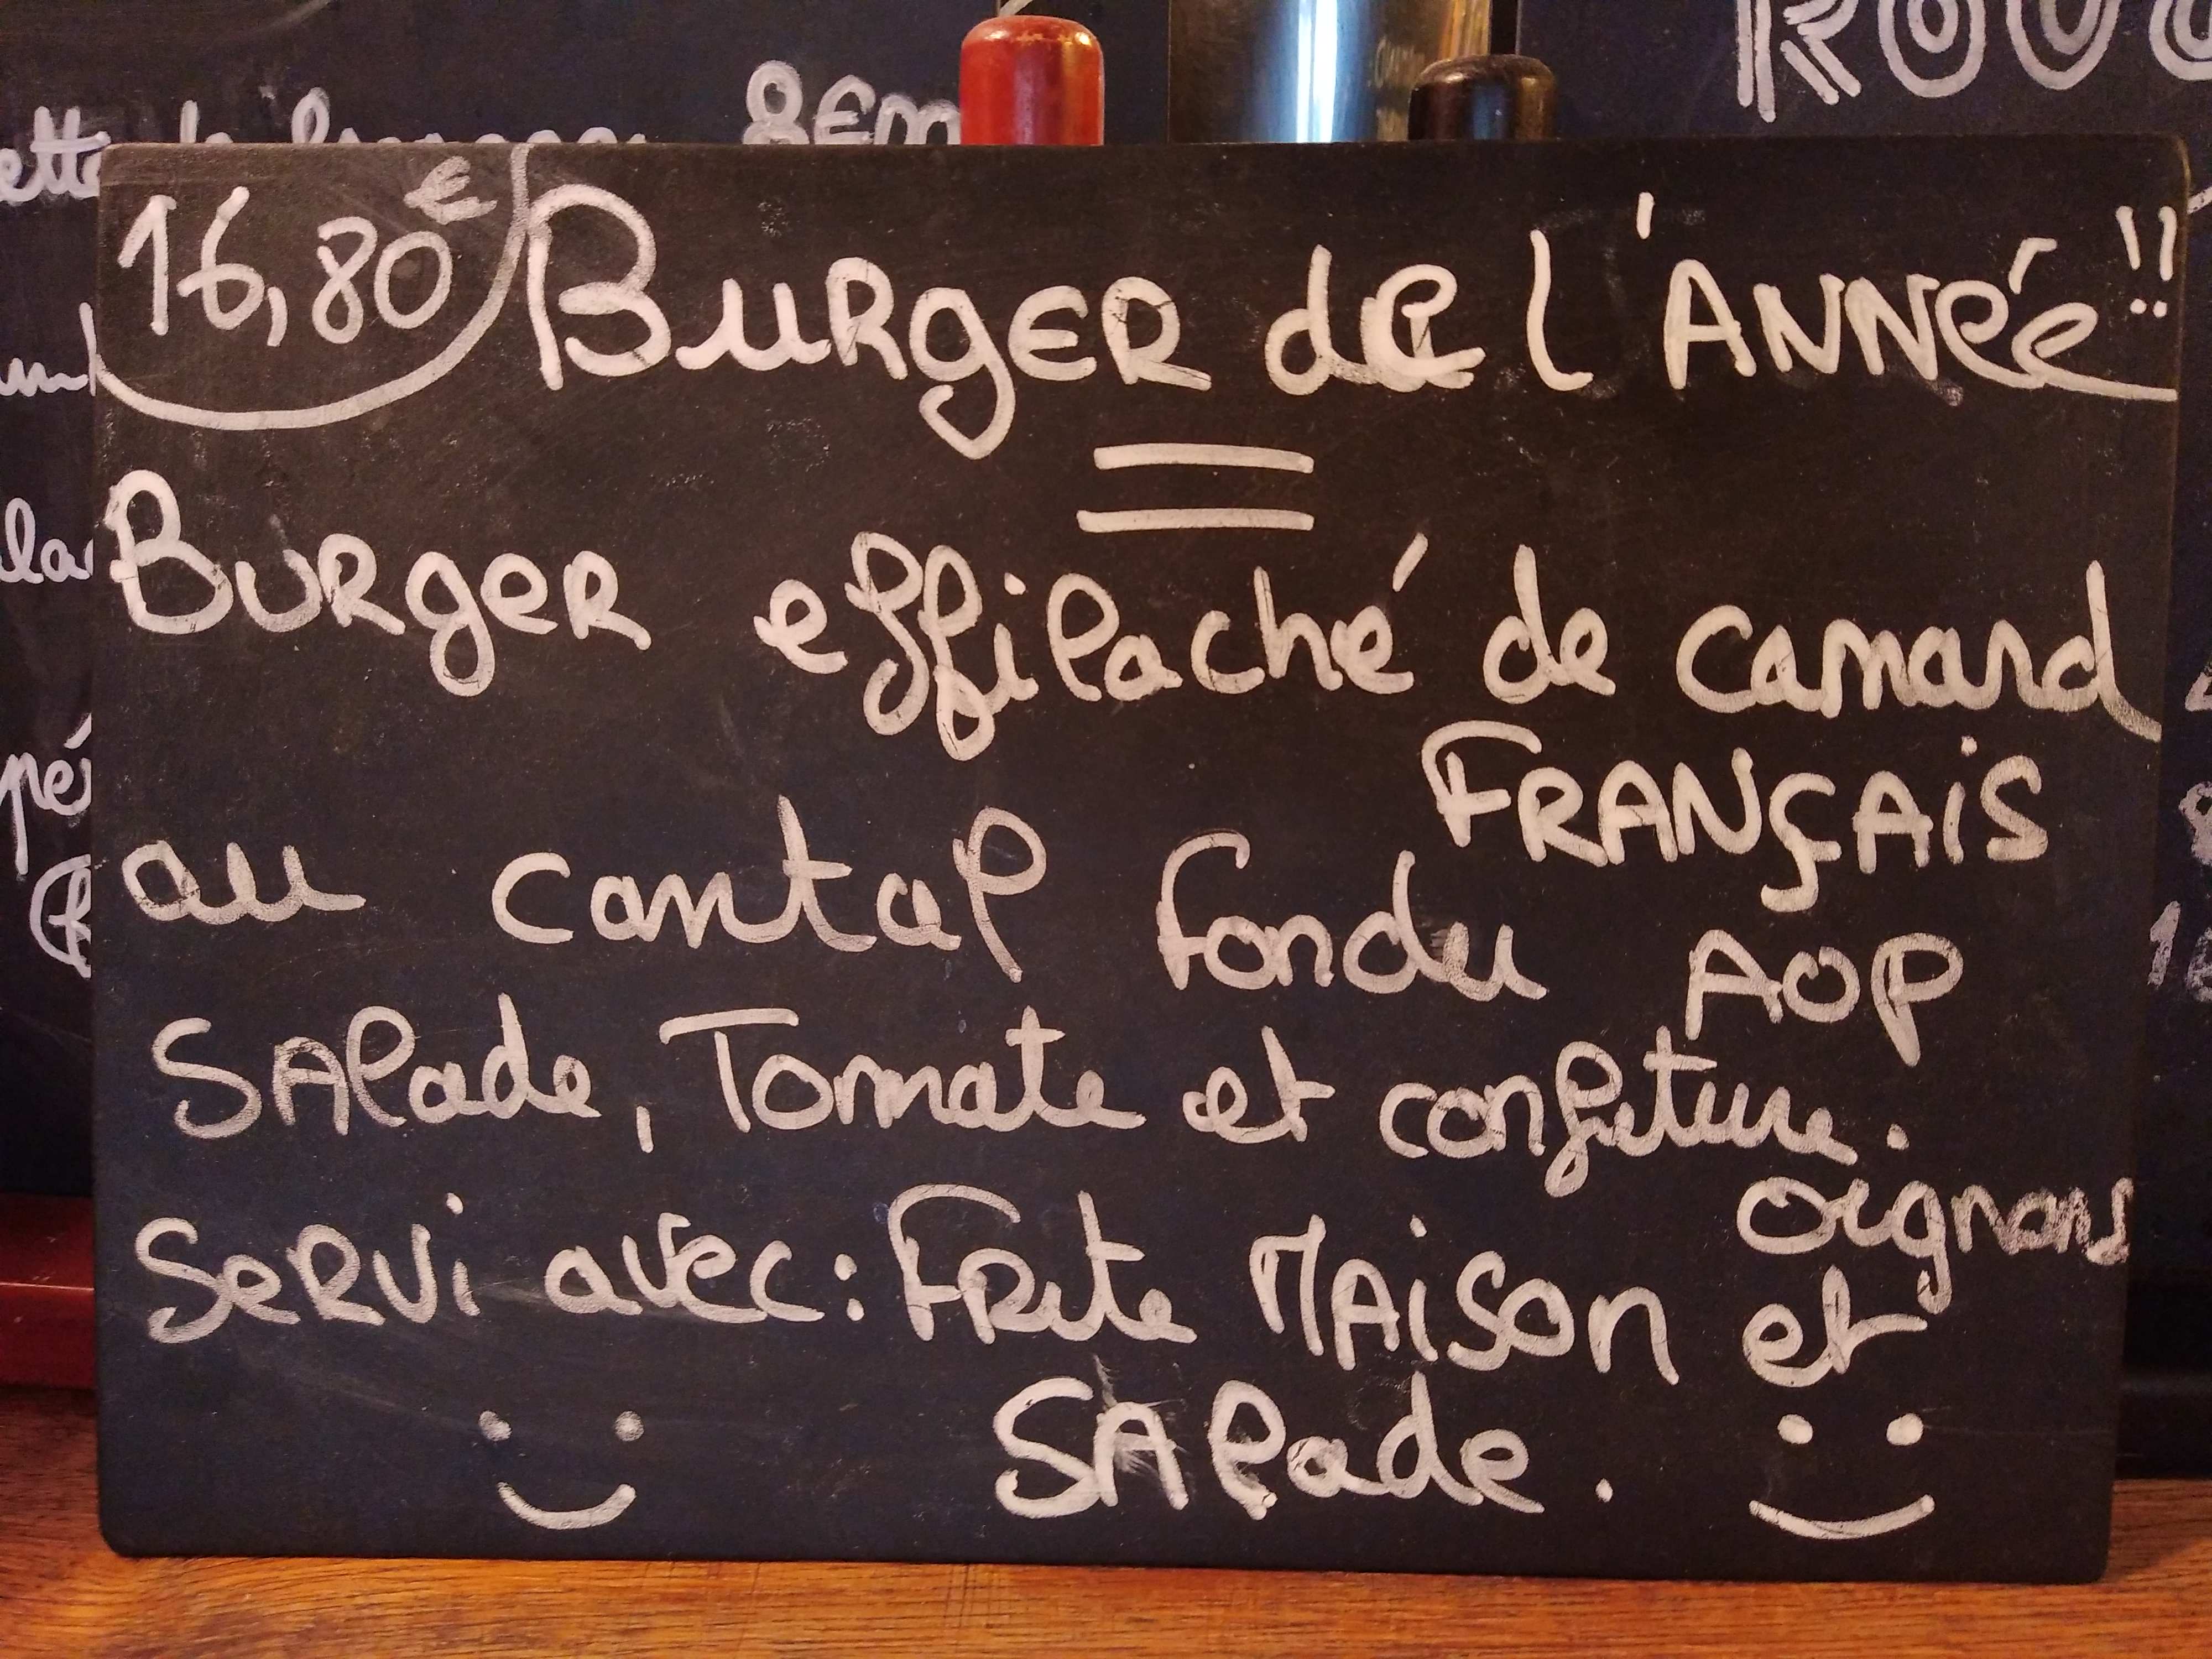 8€
16,80€
Burger de l'Année!!
Burger effilaché de canard
Français
au cantal fondu AOP
Salade, Tomate et confiture.
oignons
Servi avec: Frite Maison et
Salade.